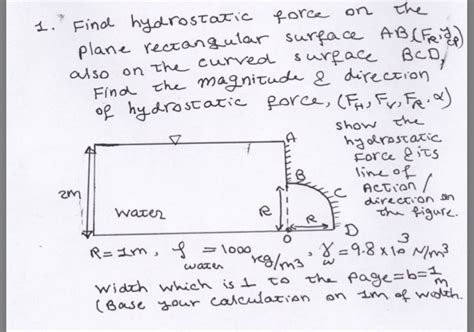 1. Find hydrostatic force on the
plane rectangular surface AB (FR, ycp)
also on the curved surface BCD,
Find the magnitude & direction
of hydrostatic force, (FH, FV, FR, α)
show the
hydrostatic
Force & its
line of
Action /
direction on
the figure.
A
B
C
D
2m
water
R
R
O
R=1m, ρ water = 1000 kg/m3, γw = 9.8 x 10^3 N/m3
width which is ⊥ to the page=b=1m
(Base your calculation on 1m of width.